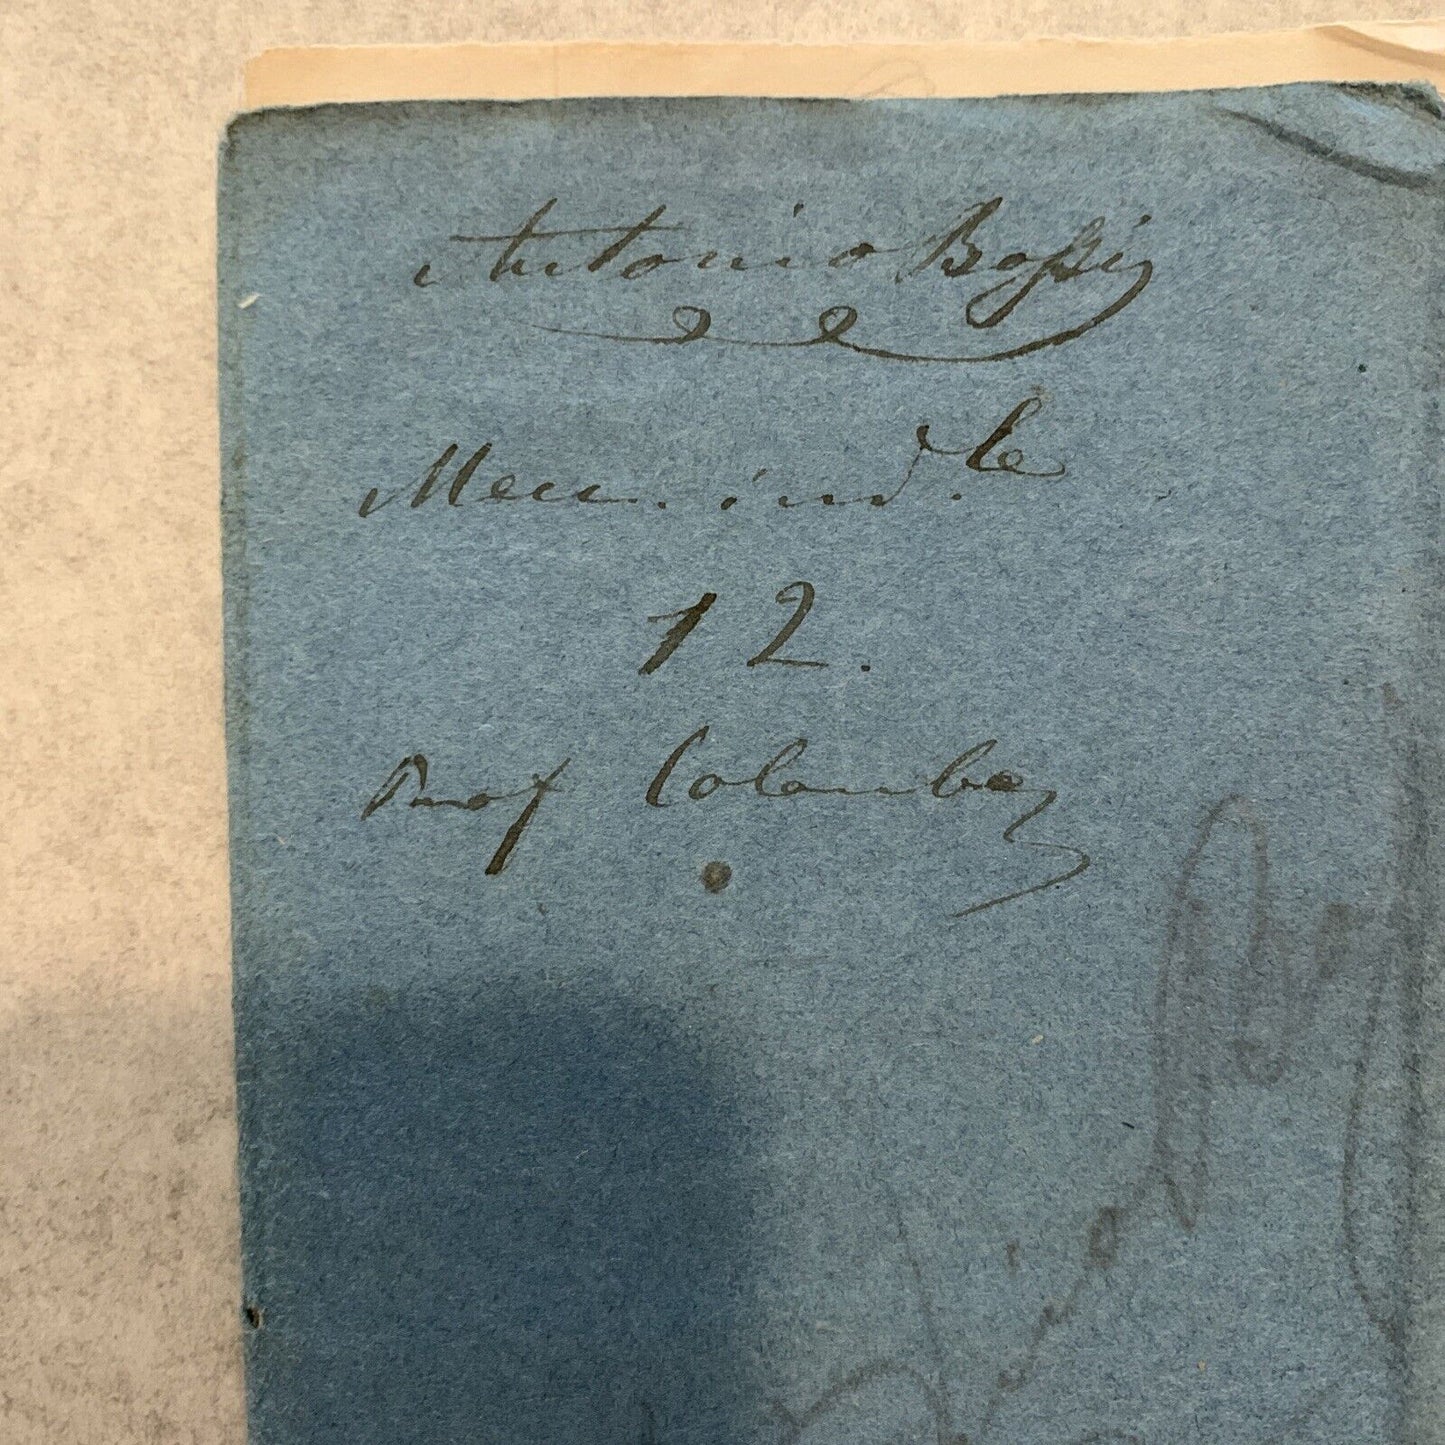 Antonio Boſsi
Mecc. ind.le
12.
Prof Colombo